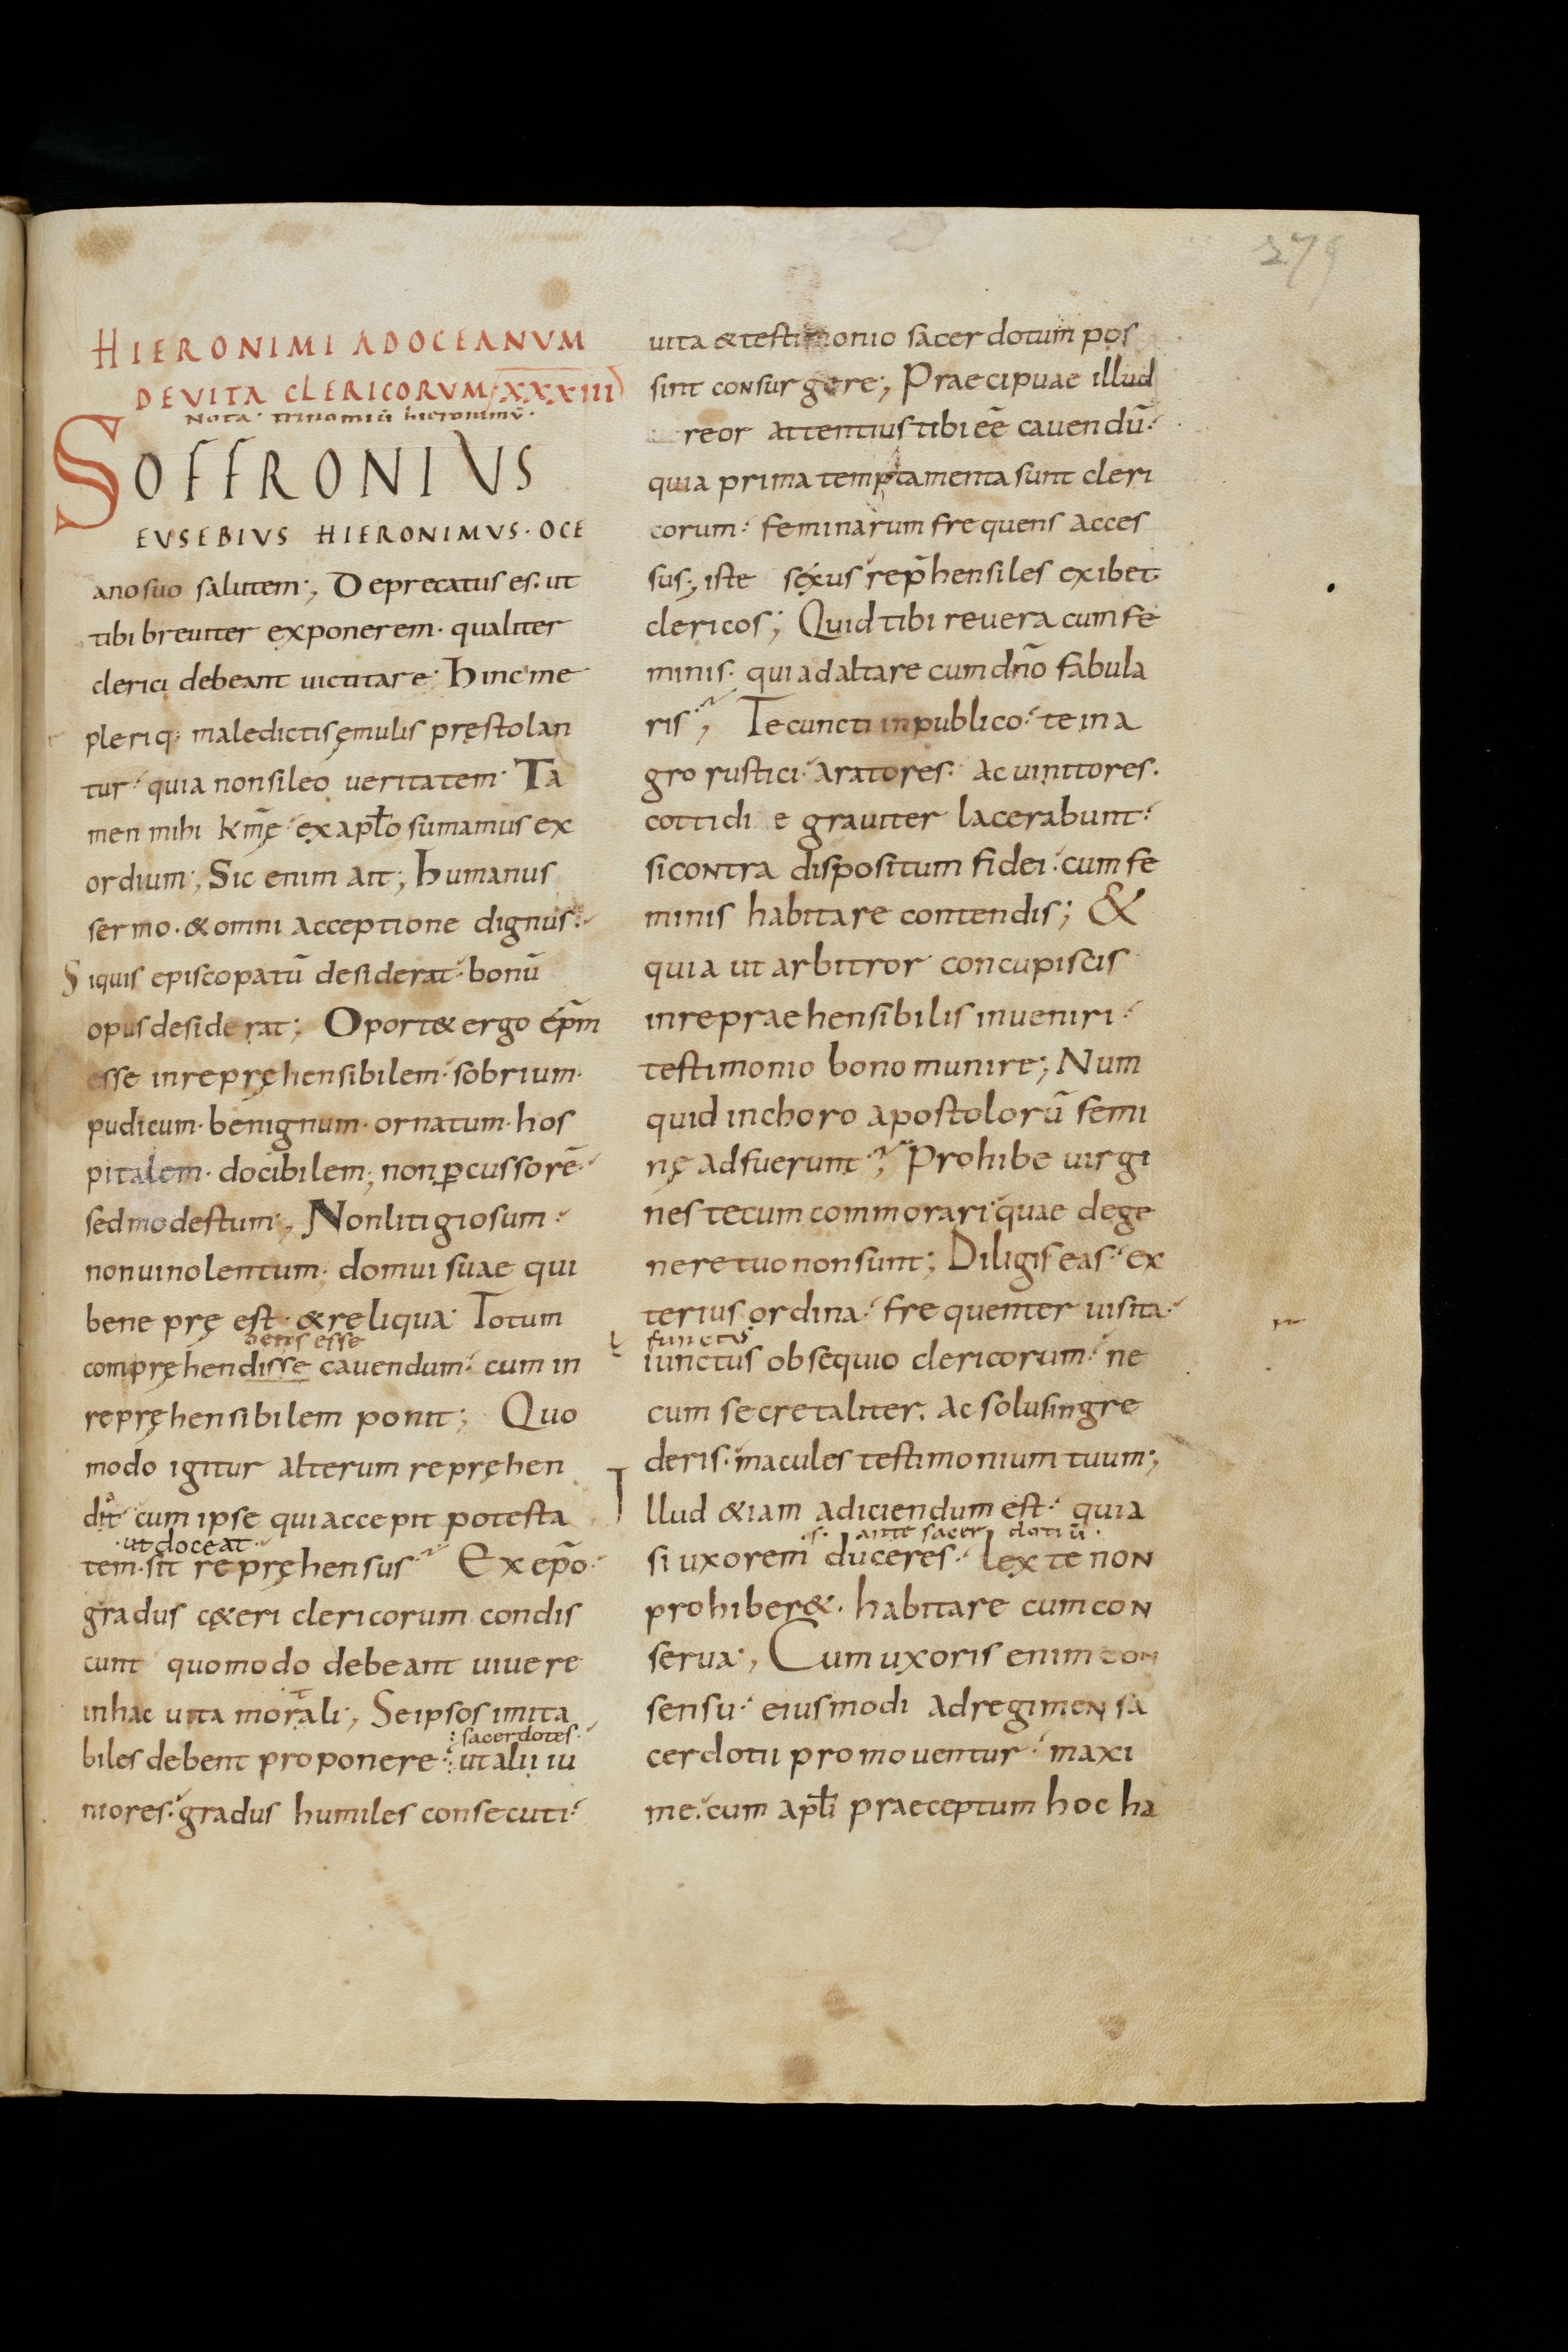 279
HIERONIMI AD OCEANVM
DE VITA CLERICORVM XXXIII
Nota trinomiū hieronimū.
SOFFRONIVS
EVSEBIVS HIERONIMVS · OCE
ano suo salutem; Deprecatus es. ut
tibi breuiter exponerem · qualiter
clerici debeant uictitare · hinc me
pleriq; maledictis ęmulis pręstolan
tur · quia non sileo ueritatem · Ta
men mihi km̄ę ex apłο sumamus ex
ordium; Sic enim ait; humanus
sermo · & omni acceptione dignus ·
Siquis episcopatū desiderat · bonū
opus desiderat; Oport& ergo ep̄m
esse inrepręhensibilem · sobrium ·
pudicum · benignum · ornatum · hos
pitalem · docibilem; non ꝑcussorē ·
sed modestum; Non litigiosum ·
non uinolentum · domui suae qui
bene prę est · & reliqua · Totum
hens esse
compręhendisse cauendum · cum in
repręhensibilem ponit; Quo
modo igitur alterum repręhen
dit · cum ipse qui accepit potesta
ut doceat
tem · sit repręhensus · Ex ep̄o ·
gradus c&eri clericorum condis
cunt quomodo debeant uiuere
in hac uita morali; Se ipsos imita
sacerdotes ·
biles debent proponere · ut alii iu
niores · gradus humiles consecuti ·
uita & testimonio sacerdotum pos
sint consurgere; Praecipuae illud
reor attentius tibi eē cauendū ·
quia prima temptamenta sunt cleri
corum · feminarum frequens acces
sus; iste sexus rep̄hensiles exibet
clericos; Quid tibi reuera cum fe
minis · qui ad altare cum dn̄o fabula
ris; Te cuncti in publico · te in a
gro rustici · aratores · ac uinitores ·
cottidie grauiter lacerabunt ·
si contra dispositum fidei · cum fe
minis habitare contendis; &
quia ut arbitror concupiscis
inreprae hensibilis inueniri ·
testimonio bono munire; Num
quid in choro apostolorū femi
nę adfuerunt; Prohibe uirgi
nes tecum commorari quae de ge
nere tuo non sunt; Diligis eas · ex
terius ordina · frequenter uisita ·
functus
iunctus obsequio clericorum · ne
cum secretaliter · ac solus ingre
deris · macules testimonium tuum;
Illud &iam adiciendum est · quia
.s. ante sacerdotiū ·
si uxorem duceres · lex te non
prohiber& · habitare cum con
serua; Cum uxoris enim con
sensu · eiusmodi ad regimen sa
cerdotii promouentur · maxi
me · cum apłi praeceptum hoc ha